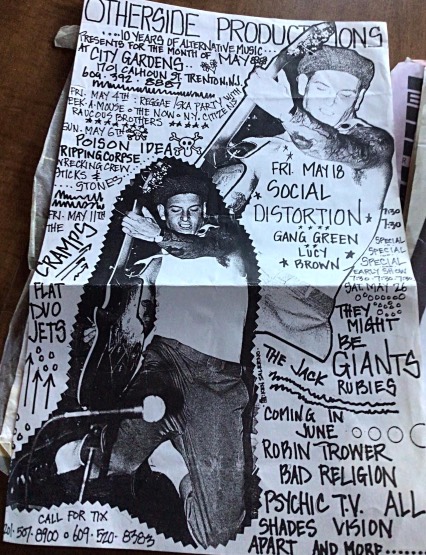 OTHERSIDE PRODUCTIONS
....10 YEARS OF ALTERNATIVE MUSIC...
PRESENTS FOR THE MONTH OF MAY
AT CITY GARDENS..
1701 CALHOUN ST. TRENTON, N.J.
609-392-8887
FRI. MAY 4TH: REGGAE/SKA PARTY WITH
EEK-A-MOUSE • THE NOW • N.Y. CITIZENS
RAUCOUS BROTHERS
SUN. MAY 6TH
POISON IDEA
RIPPING CORPSE
WRECKING CREW
STICKS &
STONES
FRI. MAY 11TH
THE
CRAMPS
FLAT
DUO
JETS
FRI. MAY 18
SOCIAL
DISTORTION
GANG GREEN
LUCY
BROWN
7:30
7:30
SPECIAL
SPECIAL
SPECIAL
EARLY SHOW
7:30 - 7:30 - 7:30
SAT. MAY 26
THEY
MIGHT
BE
GIANTS
THE JACK
RUBIES
COMING IN
JUNE
ROBIN TROWER
BAD RELIGION
PSYCHIC T.V. ALL
SHADES VISION
APART AND MORE.......
CALL FOR TIX
201-507-8900 • 609-520-8383